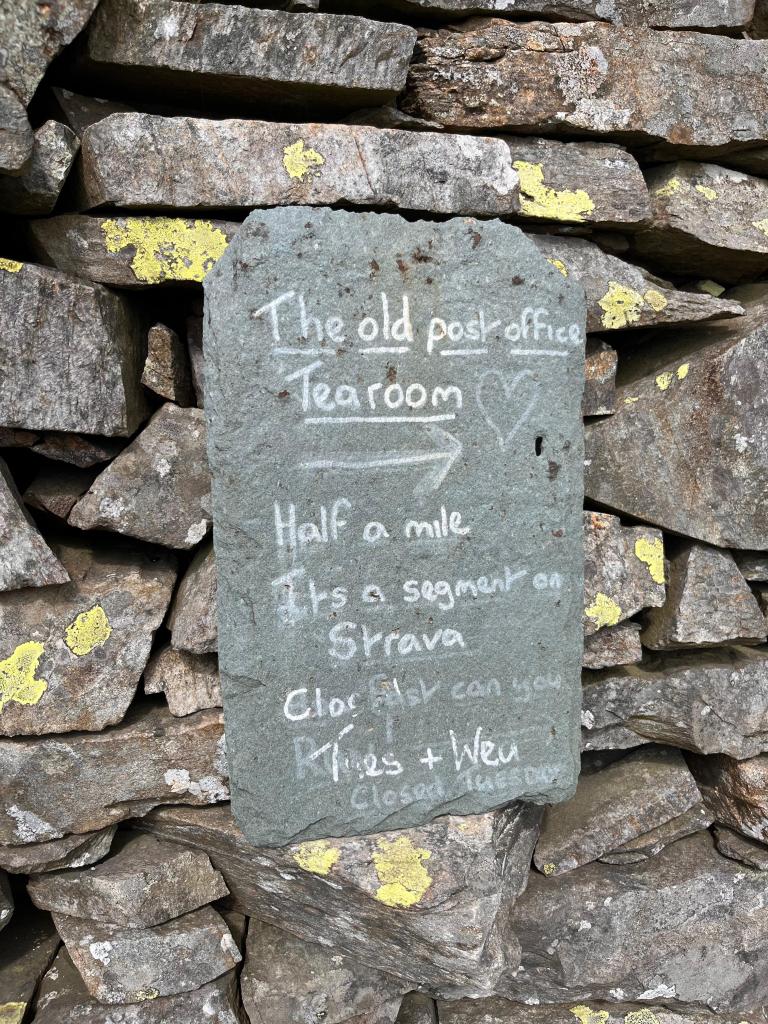 The old post office
Tearoom
Half a mile
Its a segment on
Strava
fast can you
Tues + Wed
Closed Tuesday